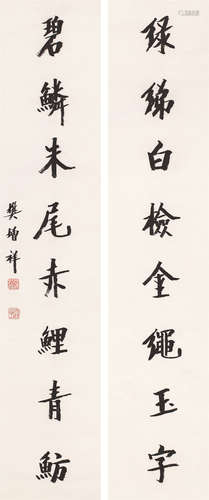 綠綈白檢金繩玉字
碧鱗朱尾赤鯉青魴
樊增祥